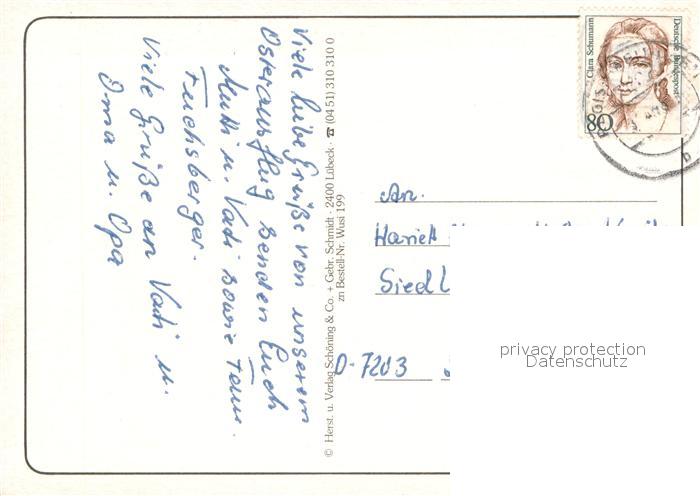 Viele liebe Grüße von unserem
Osterausflug senden Euch
Mutti u. Vati sowie Fam.
Fuchsberger.
Viele Grüße an Vati u.
Oma u. Opa
© Herst. u. Verlag Schöning & Co. + Gebr. Schmidt · 2400 Lübeck · ☎ (04 51) 310 310 0
zn Bestell-Nr. Wusi 199
Clara Schumann
Deutsche Bundespost
80
An.
Hariett
Siedl
D-7203
privacy protection
Datenschutz